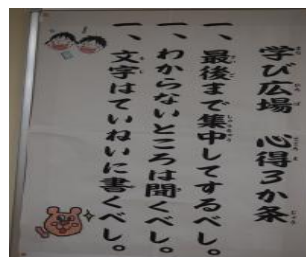 学び広場 心得３か条
一、最後まで集中してするべし。
一、わからないところは聞くべし。
一、文字はていねいに書くべし。